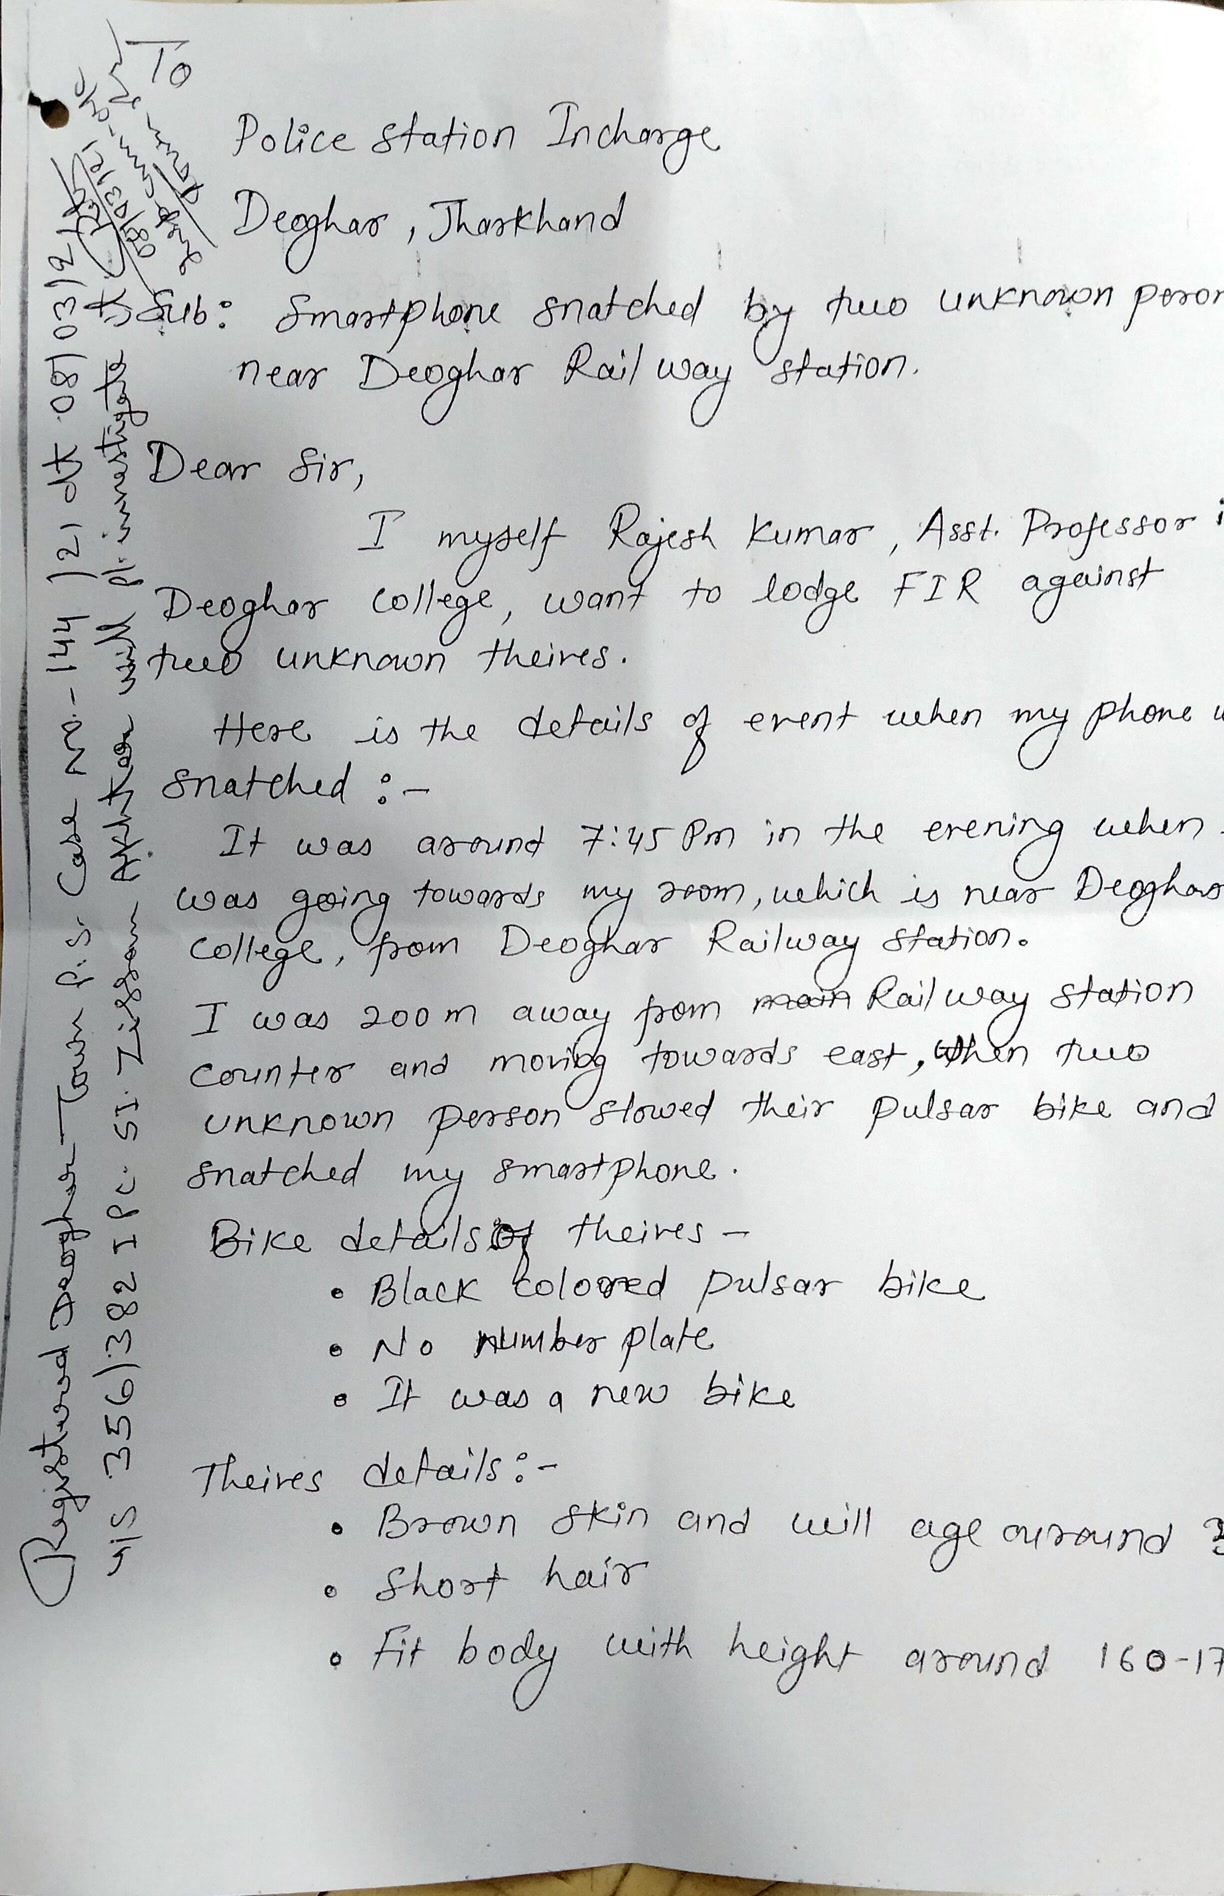 To
Police Station Incharge
Deoghar, Jharkhand
Sub: Smartphone snatched by two unknown peron
near Deoghar Railway station.
Dear Sir,
I myself Rajesh Kumar, Asst. Professor i
Deoghar College, want to lodge FIR against
two unknown theives.
Here is the details of event when my phone w
snatched :-
It was around 7:45 Pm in the evening when
was going towards my room, which is near Deoghar
College, from Deoghar Railway station.
I was 200m away from main Railway station
counter and moving towards east, when two
unknown person slowed their pulsar bike and
snatched my smartphone.
Bike details of theives -
• Black colored pulsar bike
• No number plate
• It was a new bike
Theives details :-
• Brown skin and will age around 3
• Short hair
• Fit body with height around 160-17
Registered Deoghar Town P.S. Case No.- 144/21 dt 08/03/21
u/s 356/382 IPC. SI. Zissan Akhtar will pl. investigate it
08/03/21